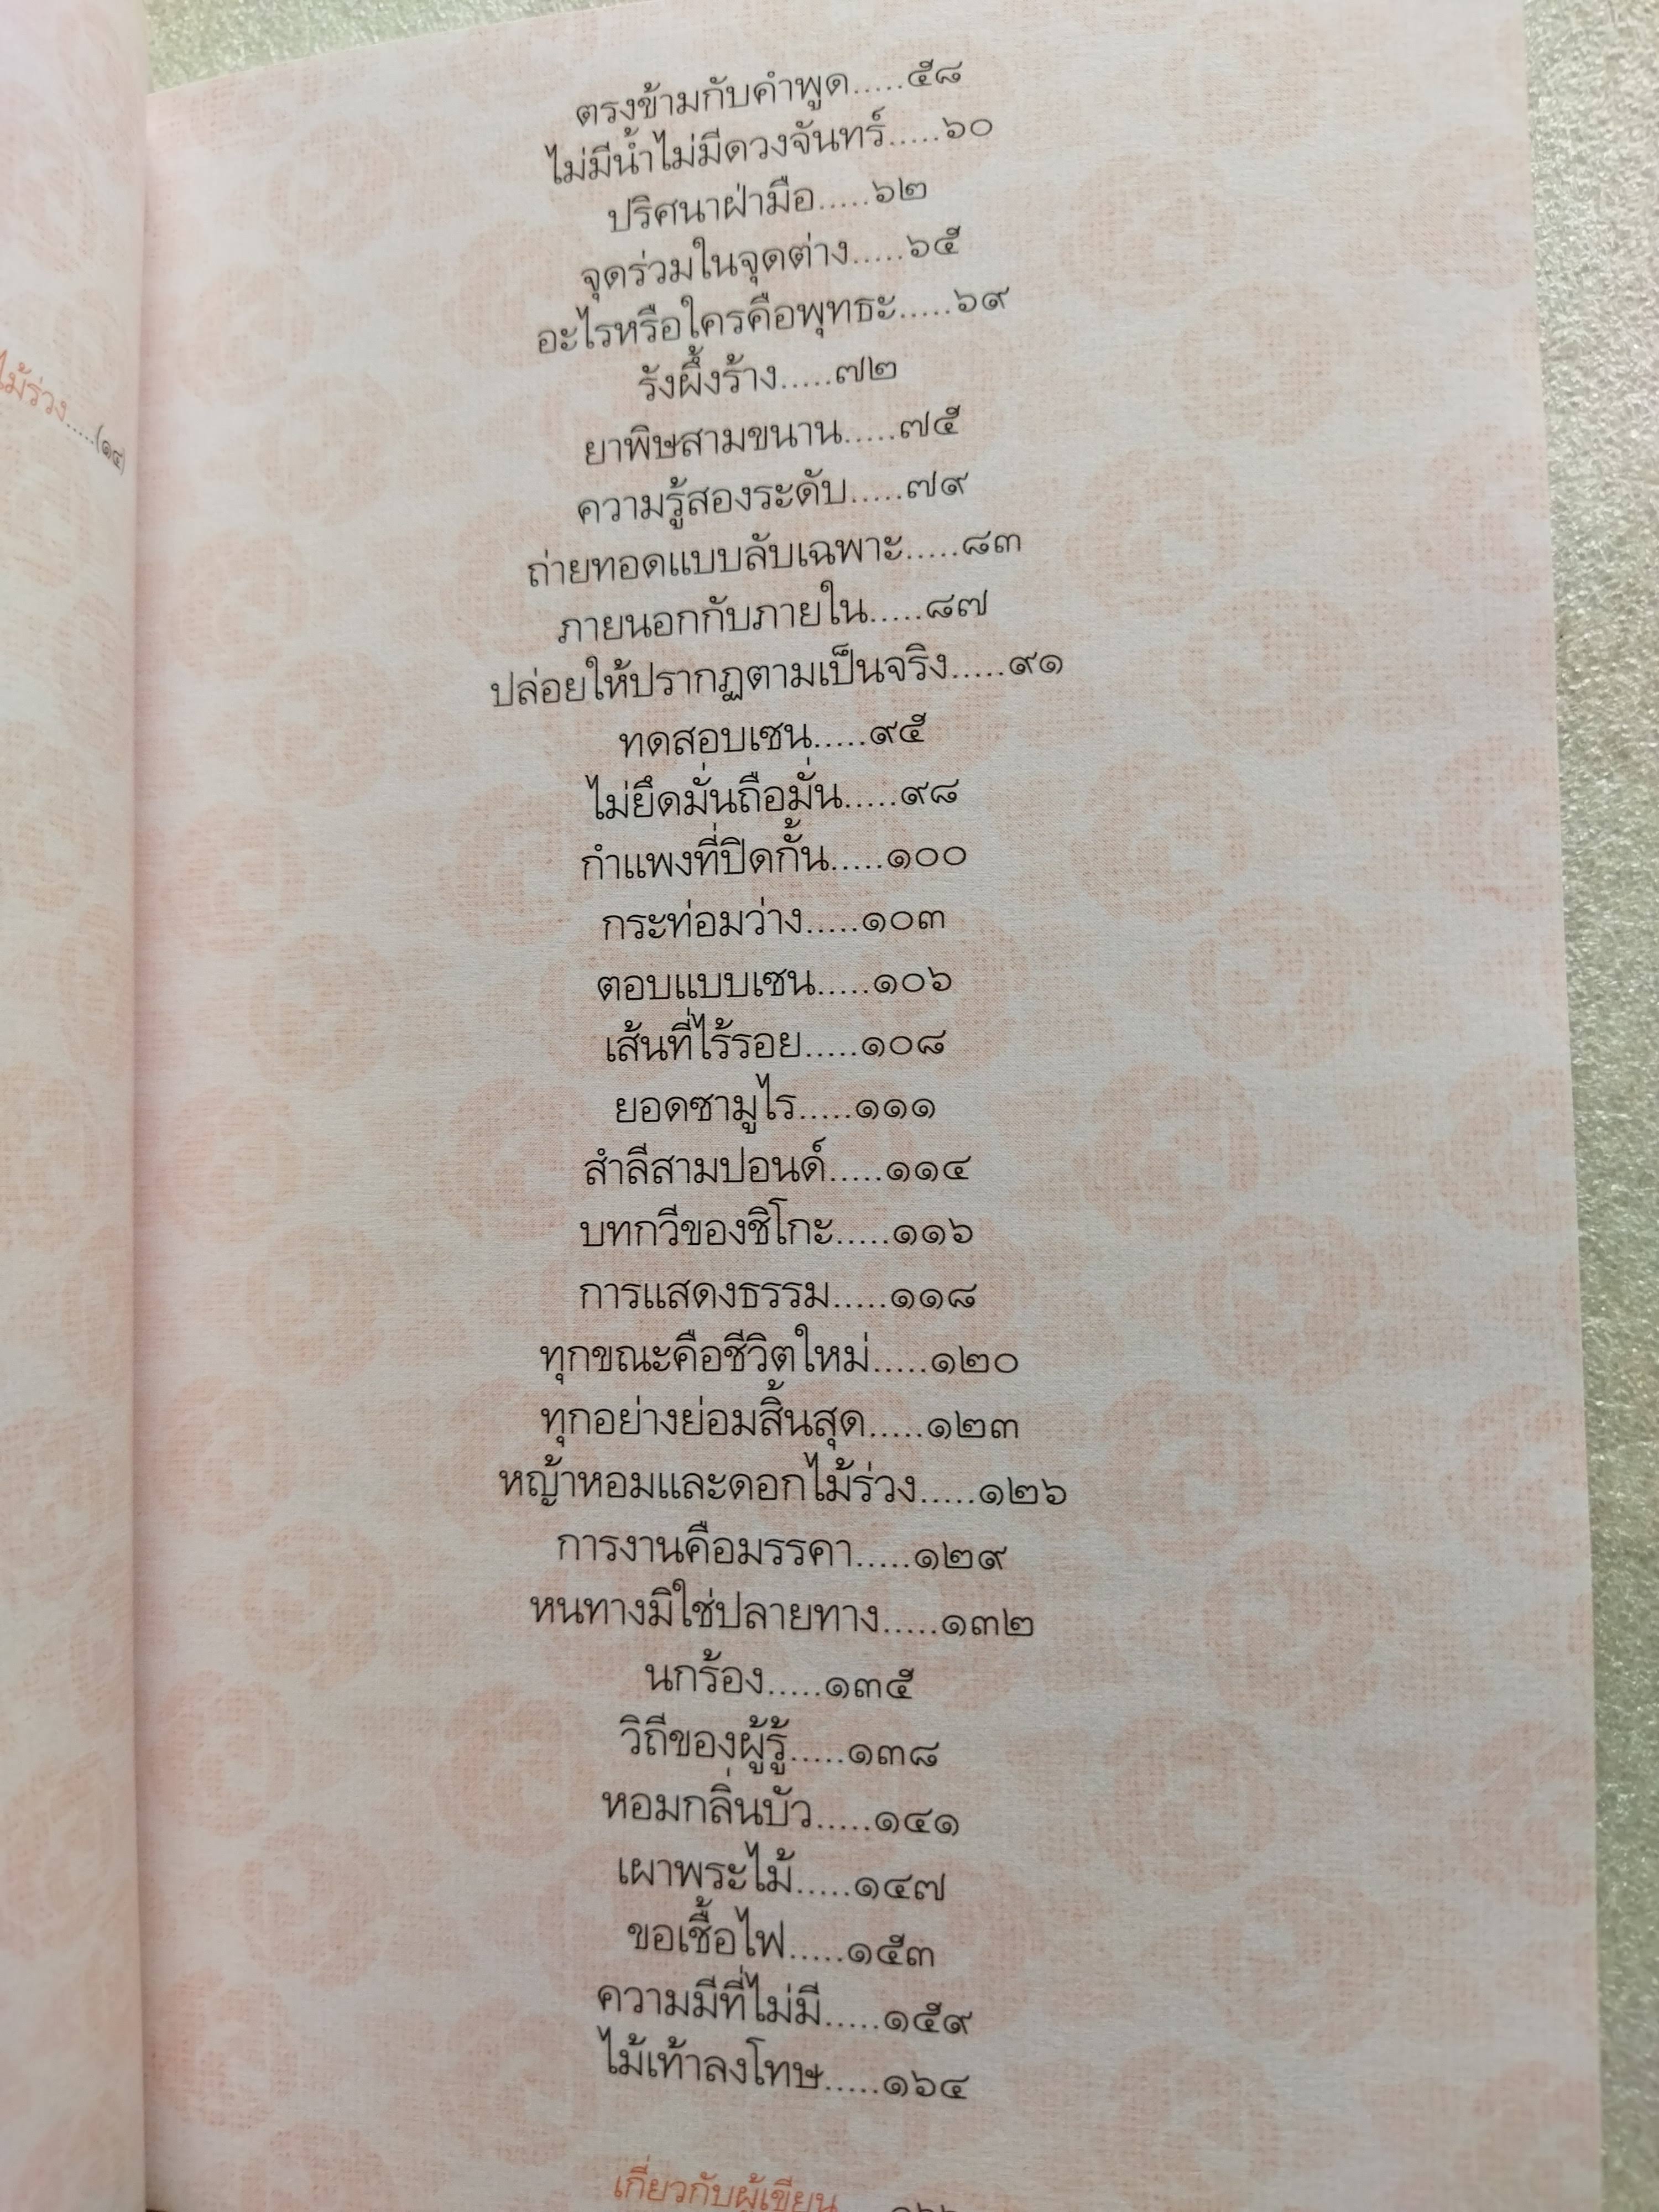 ไม้ร่วง.....(๑๔)
ตรงข้ามกับคำพูด.....๕๘
ไม่มีน้ำไม่มีดวงจันทร์.....๖๐
ปริศนาฝ่ามือ.....๖๒
จุดร่วมในจุดต่าง.....๖๕
อะไรหรือใครคือพุทธะ.....๖๙
รังผึ้งร้าง.....๗๒
ยาพิษสามขนาน.....๗๕
ความรู้สองระดับ.....๗๙
ถ่ายทอดแบบลับเฉพาะ.....๘๓
ภายนอกกับภายใน.....๘๗
ปล่อยให้ปรากฏตามเป็นจริง.....๙๑
ทดสอบเซน.....๙๕
ไม่ยึดมั่นถือมั่น.....๙๘
กำแพงที่ปิดกั้น.....๑๐๐
กระท่อมว่าง.....๑๐๓
ตอบแบบเซน.....๑๐๖
เส้นที่ไร้รอย.....๑๐๘
ยอดซามูไร.....๑๑๑
สำลีสามปอนด์.....๑๑๔
บทกวีของชิโกะ.....๑๑๖
การแสดงธรรม.....๑๑๘
ทุกขณะคือชีวิตใหม่.....๑๒๐
ทุกอย่างย่อมสิ้นสุด.....๑๒๓
หญ้าหอมและดอกไม้ร่วง.....๑๒๖
การงานคือมรรคา.....๑๒๙
หนทางมิใช่ปลายทาง.....๑๓๒
นกร้อง.....๑๓๕
วิถีของผู้รู้.....๑๓๘
หอมกลิ่นบัว.....๑๔๑
เผาพระไม้.....๑๔๗
ขอเชื้อไฟ.....๑๕๓
ความมีที่ไม่มี.....๑๕๙
ไม้เท้าลงโทษ.....๑๖๔
เกี่ยวกับผู้เขียน